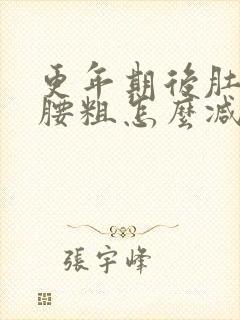 更年期後肚
腰粗怎麼減
張宇峰